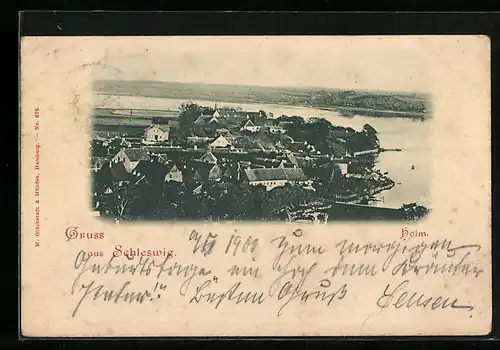 M. Glückstadt & Münden, Hamburg. — No. 675.
Gruss
aus Schleswig.
Holm.
1900 Zum morgigen
Geburtstage ein Hoch dem Bruder
Besten Gruß